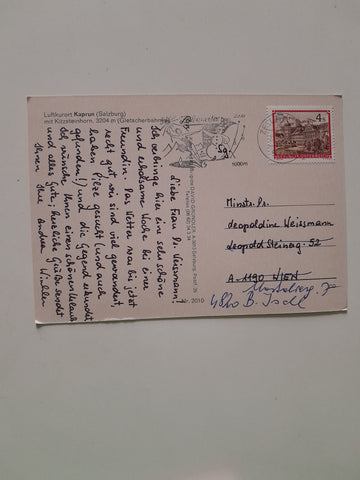 Luftkurort Kaprun (Salzburg)
mit Kitzsteinhorn, 3204 m (Gletscherbahn)
Liebe Frau Dr. Weissmann!
Ich verbringe hier eine sehr schöne
und erholsame Woche bei einer
Freundin. Das Wetter war bis jetzt
recht gut, wir sind viel gewandert,
haben Pilze gesucht (und auch
gefunden!) und die Gegend erkundet.
Ich wünsche Ihnen einen schönen Urlaub
und alles Gute; herzliche Grüße sendet
Ihnen Ihre Andrea Winkler
Nr. 2010
1000m
4 S
Minstr.
Leopoldine Weissmann
Leopold Steinerg. 52
A-1190 WIEN
4820 B. Ischl